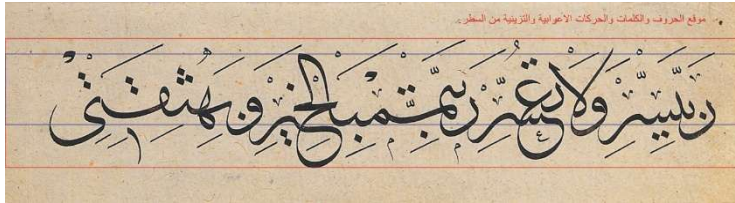 موقع الحروف والكلمات والحركات الاعرابية والتزينية من السطر .
رب يسر ولا تعسر رب تمم بالخير وبه ثقتي